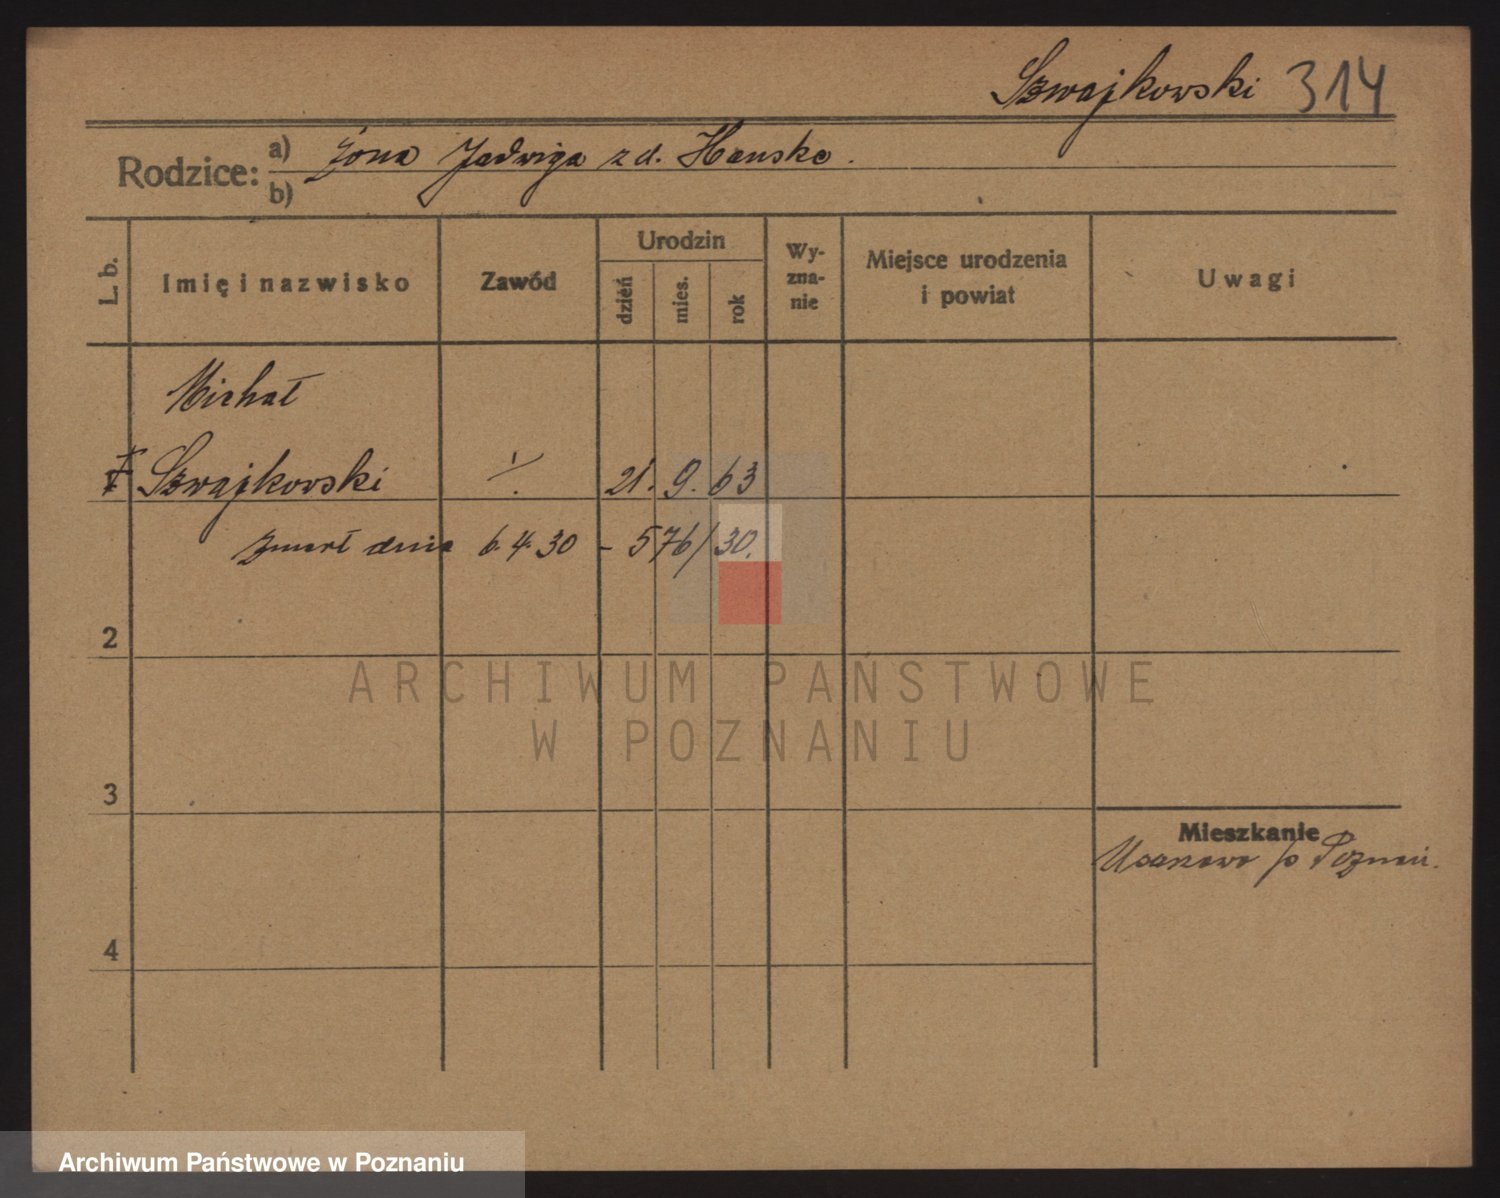 Szwajkowski 314
Rodzice: a) żona Jadwiga z d. Hanske.
b)
L. b. Imię i nazwisko Zawód Urodzin dzień mies. rok Wy-zna-nie Miejsce urodzenia i powiat Uwagi
Michał
Szwajkowski ./. 21. 9. 63
zmarł dnia 6.4.30 - 576/30.
2
ARCHIWUM PAŃSTWOWE
W POZNANIU
3
Mieszkanie
p Poznań.
4
Archiwum Państwowe w Poznaniu